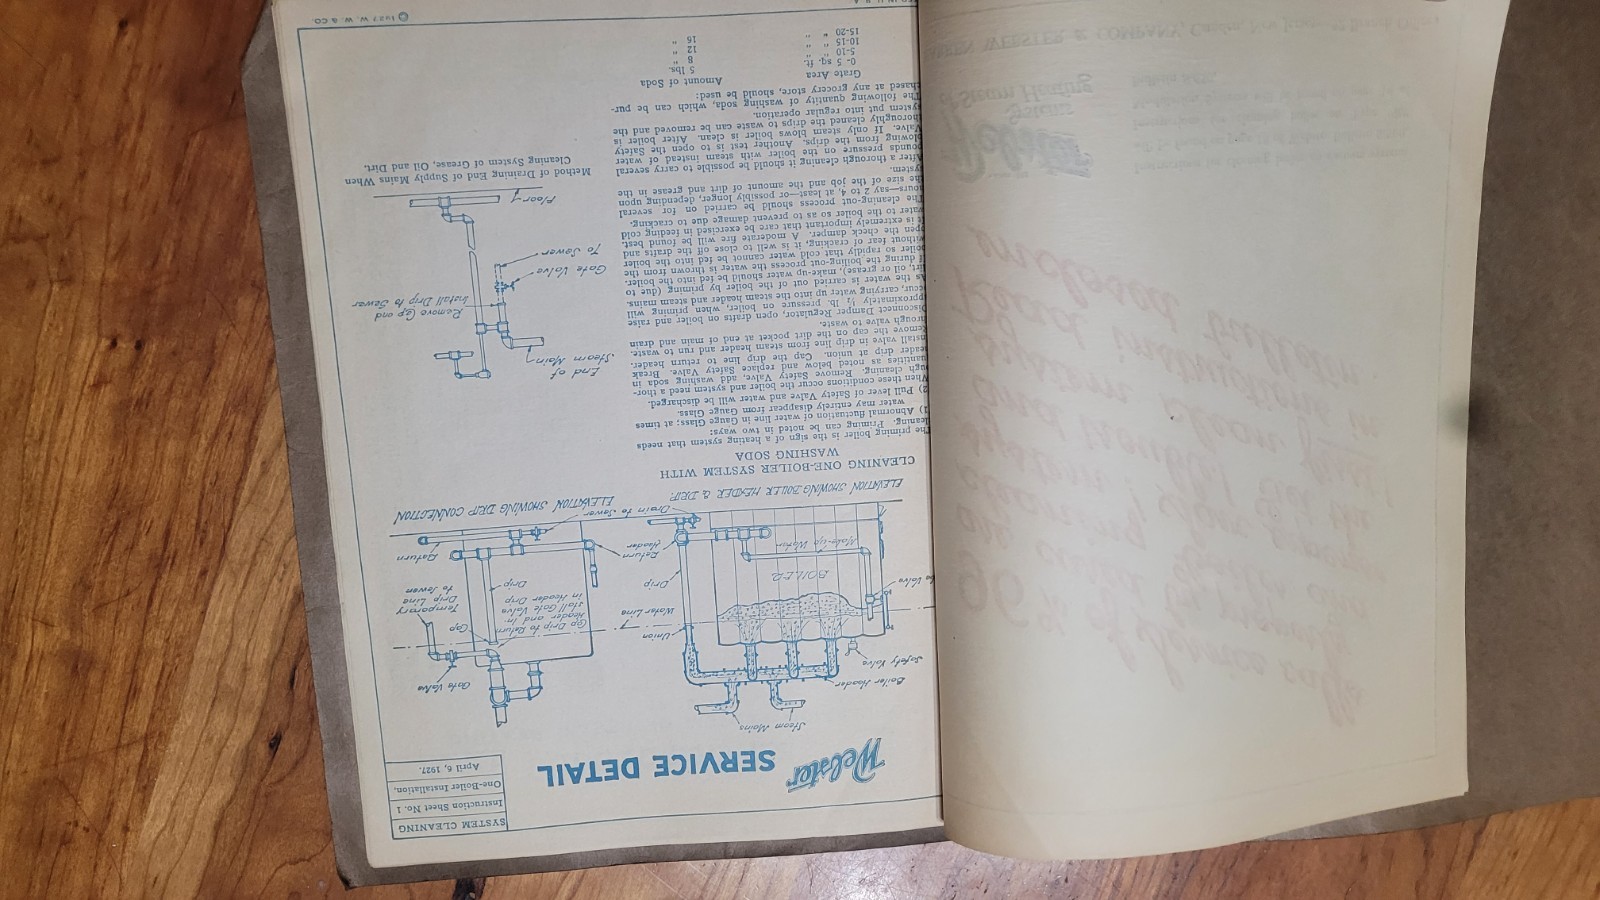 Webster SERVICE DETAIL
SYSTEM CLEANING
Instruction Sheet No. 1
One-Boiler Installation.
April 6, 1927.
Steam Mains
Boiler Header
Safety Valve
Union
Water Line
Drip
BOILER
Make-up Water
Return
Header
Drain to Sewer
ELEVATION SHOWING BOILER HEADER & DRIP
Gate Valve
Cap
Temporary
Drip Line
to Sewer
Cap Drip to Return
Header and In-
stall Gate Valve
in Header Drip
Drip
Return
ELEVATION SHOWING DRIP CONNECTION
CLEANING ONE-BOILER SYSTEM WITH
WASHING SODA
The priming boiler is the sign of a heating system that needs
cleaning. Priming can be noted in two ways:
1) Abnormal fluctuation of water line in Gauge Glass; at times
water may entirely disappear from Gauge Glass.
2) Pull lever of Safety Valve and water will be discharged.
When these conditions occur the boiler and system need a thor-
ough cleaning. Remove Safety Valve, add washing soda in
quantities as noted below and replace Safety Valve. Break
header drip at union. Cap the drip line to return header.
Install valve in drip line from steam header and run to waste.
Remove the cap on the dirt pocket at end of main and drain
through valve to waste.
Disconnect Damper Regulator, open drafts on boiler and raise
approximately ½ lb. pressure on boiler, when priming will
occur, carrying water up into the steam header and steam mains.
As the water is carried out of the boiler by priming (due to
dirt, oil or grease), make-up water should be fed into the boiler.
If during the boiling-out process the water is thrown from the
boiler so rapidly that cold water cannot be fed into the boiler
without fear of cracking, it is well to close off the drafts and
open the check damper. A moderate fire will be found best.
It is extremely important that care be exercised in feeding cold
water to the boiler so as to prevent damage due to cracking.
The cleaning-out process should be carried on for several
hours—say 2 to 4, at least—or possibly longer, depending upon
the size of the job and the amount of dirt and grease in the
system.
After a thorough cleaning it should be possible to carry several
pounds pressure on the boiler with steam instead of water
blowing from the drips. Another test is to open the Safety
Valve. If only steam blows boiler is clean. After boiler is
thoroughly cleaned the drips to waste can be removed and the
system put into regular operation.
The following quantity of washing soda, which can be pur-
chased at any grocery store, should be used:
Grate Area Amount of Soda
0- 5 sq. ft. 5 lbs.
5-10 " " 8 "
10-15 " " 12 "
15-20 " " 15 "
End of
Steam Main
Remove Cap and
Install Drip to Sewer
Gate Valve
To Sewer
Floor
Method of Draining End of Supply Mains When
Cleaning System of Grease, Oil and Dirt.
© 1927 W. W. & CO.